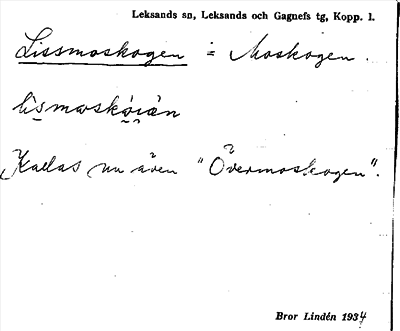 Leksands sn, Leksands och Gagnefs tg, Kopp. l.
Lissmoskogen = Moskogen.
Kallas nu även "Övermoskogen".
Bror Lindén 1934